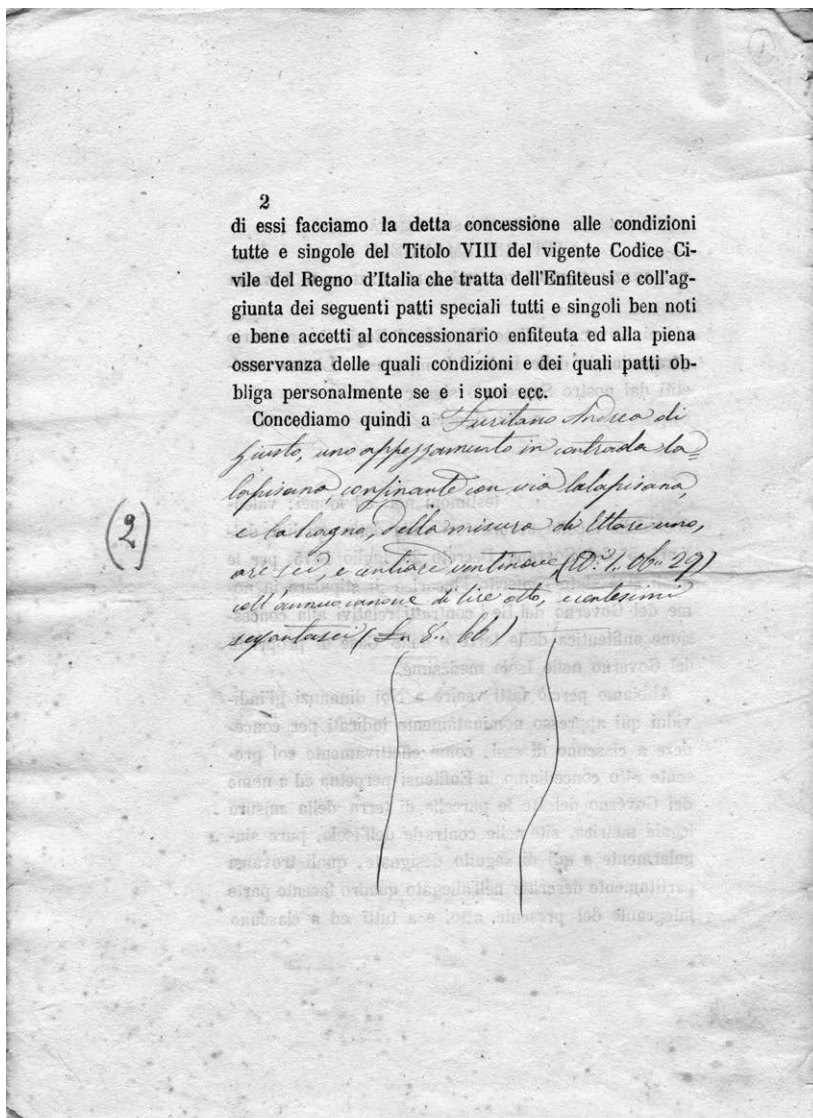 2
di essi facciamo la detta concessione alle condizioni
tutte e singole del Titolo VIII del vigente Codice Ci-
vile del Regno d'Italia che tratta dell'Enfiteusi e coll'ag-
giunta dei seguenti patti speciali tutti e singoli ben noti
e bene accetti al concessionario enfiteuta ed alla piena
osservanza delle quali condizioni e dei quali patti ob-
bliga personalmente se e i suoi ecc.
Concediamo quindi a Andrea di
Giusto, uno appezzamento in contrada la=
confinante con via
e della misura di Ettare uno,
are sei, e centiare ventinove 1.. 06.. 29)
coll'annuo canone di lire otto, centesimi
sessantasei 8.. 66)
(2)